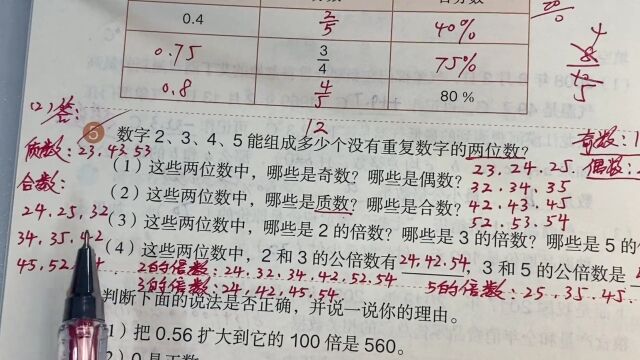 0.4 2/5 40%
0.75 3/4 75%
0.8 4/5 80%
(2)答:
12
5 数字2、3、4、5能组成多少个没有重复数字的两位数?
质数:23.43.53
奇数:
偶数:
(1)这些两位数中,哪些是奇数?哪些是偶数?
23.24.25.
32.34.35
42.43.45
52.53.54
合数:
24.25.32
34.35.42
45.52.54
(2)这些两位数中,哪些是质数?哪些是合数?
(3)这些两位数中,哪些是2的倍数?哪些是3的倍数?哪些是5的倍
(4)这些两位数中,2和3的公倍数有24.42.54,3和5的公倍数是
2的倍数:24.32.34.42.52.54
3的倍数:24.42.45.54
5的倍数:25.35.45.
判断下面的说法是否正确,并说一说你的理由。
(1)把0.56扩大到它的100倍是560。